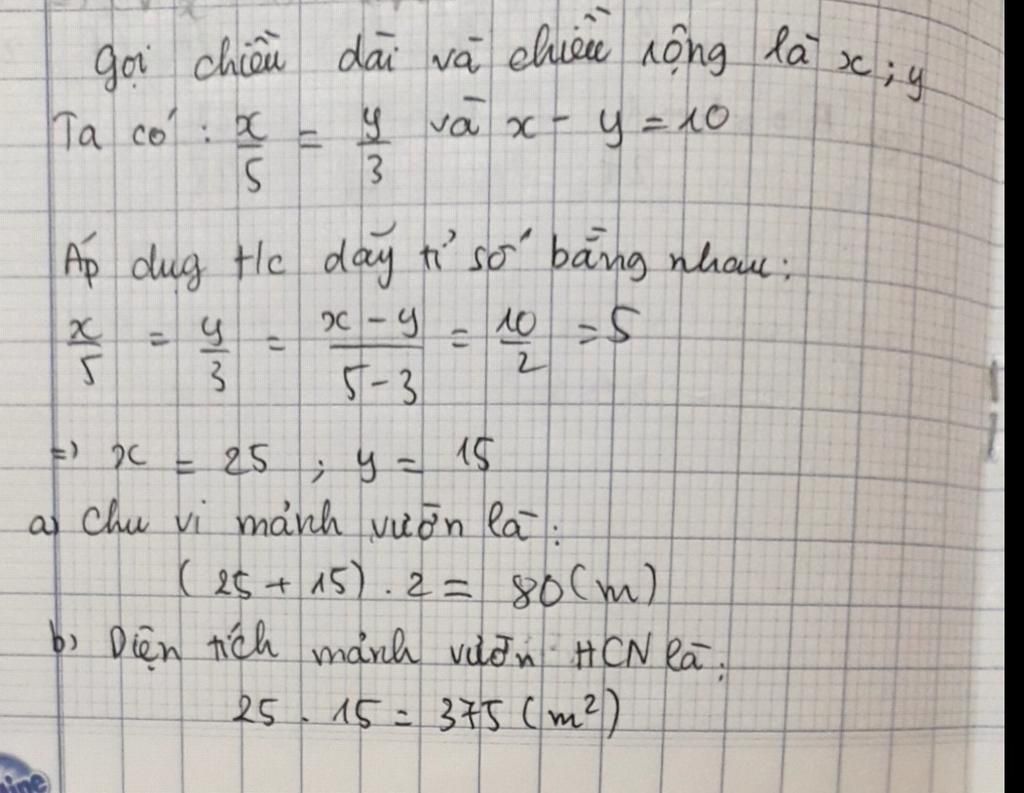 Gọi chiều dài và chiều rộng là x; y
Ta có: x/5 = y/3 và x - y = 10
Áp dug t/c dãy tỉ số bằng nhau:
x/5 = y/3 = (x - y)/(5 - 3) = 10/2 = 5
=> x = 25 ; y = 15
a) Chu vi mảnh vườn là:
(25 + 15) . 2 = 80 (m)
b) Diện tích mảnh vườn HCN là:
25 . 15 = 375 (m²)